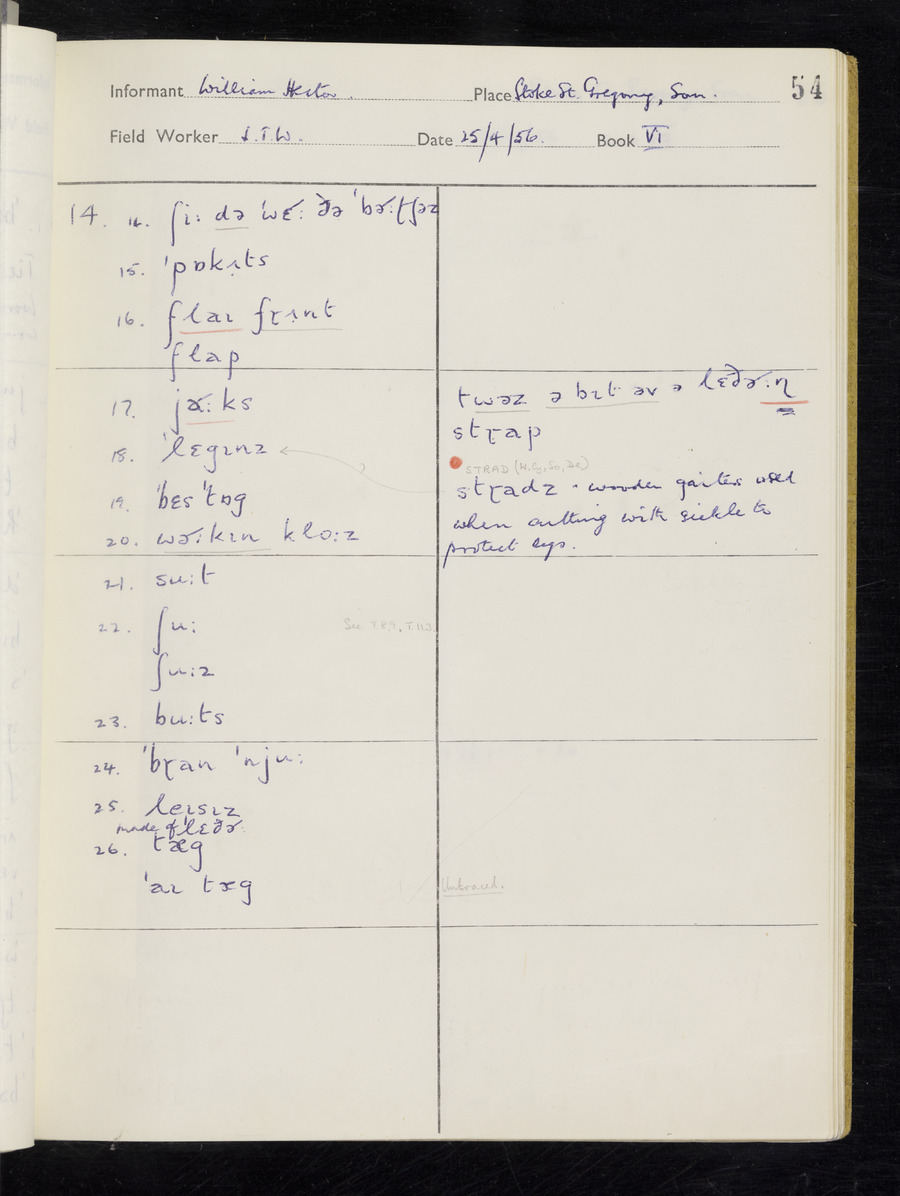 Informant William Hector. Place Stoke St. Gregory, Som. 54
Field Worker J.T.W. Date 25/4/56. Book VI
14. 14. ʃiː də ˈwɛ˞ː ðə ˈbɹəːtʃəz
15. ˈpɒkɪts
16. flaɪ fɽɪnt
flap
17. jɑ˞ːks
18. ˈlɛgɪnz
19. ˈbɛs ˈtɒg
20. wə˞ːkɪn kloːz
twəz ə bɪt əv ə lɛðə˞ːn̩
stɽap
STRAD (W, Gy, So, De)
stɽadz - wooden gaiters used
when cutting with sickle to
protect legs.
21. suːt
22. ʃuː
See 7.8.9, 7.11.3
ʃuːz
23. buːts
24. ˈbɽan ˈnjuː
25. leɪsɪz
made of ˈlɛðə˞
26. tæg
ˈaɪ tæg
Unbraced.